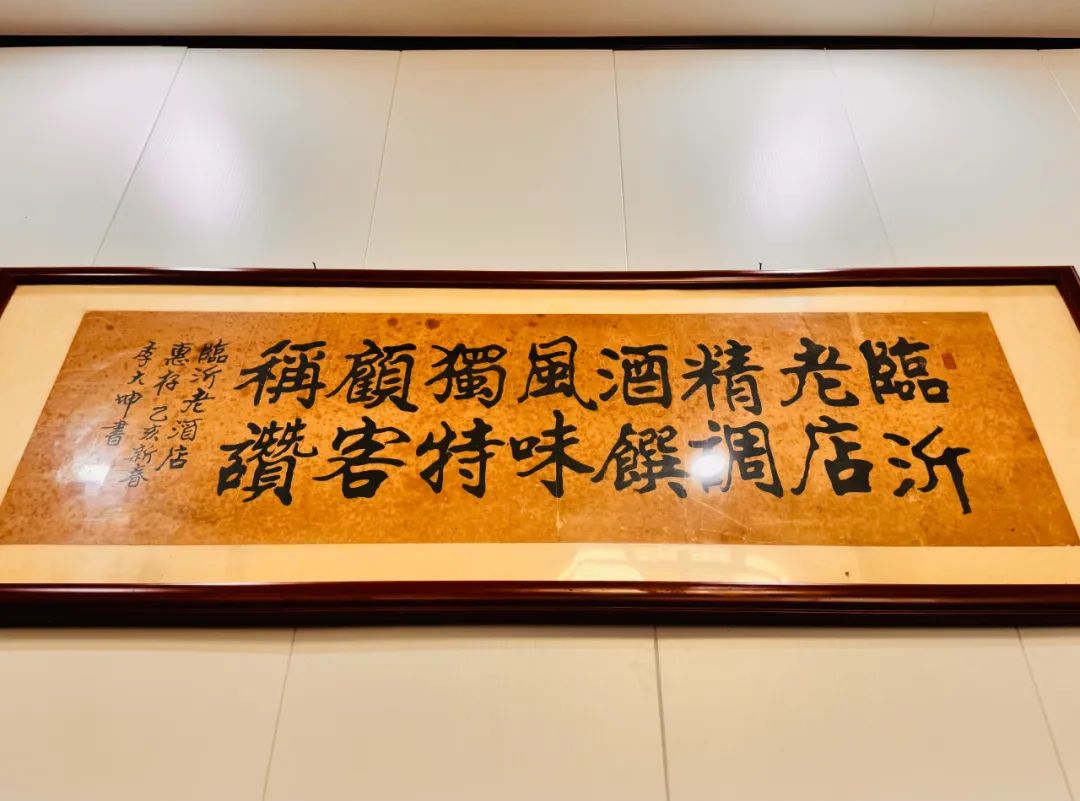 臨沂
老店
精調
酒饌
風味
獨特
顧客
稱讚
臨沂老酒店
惠存乙亥新春
大坤書